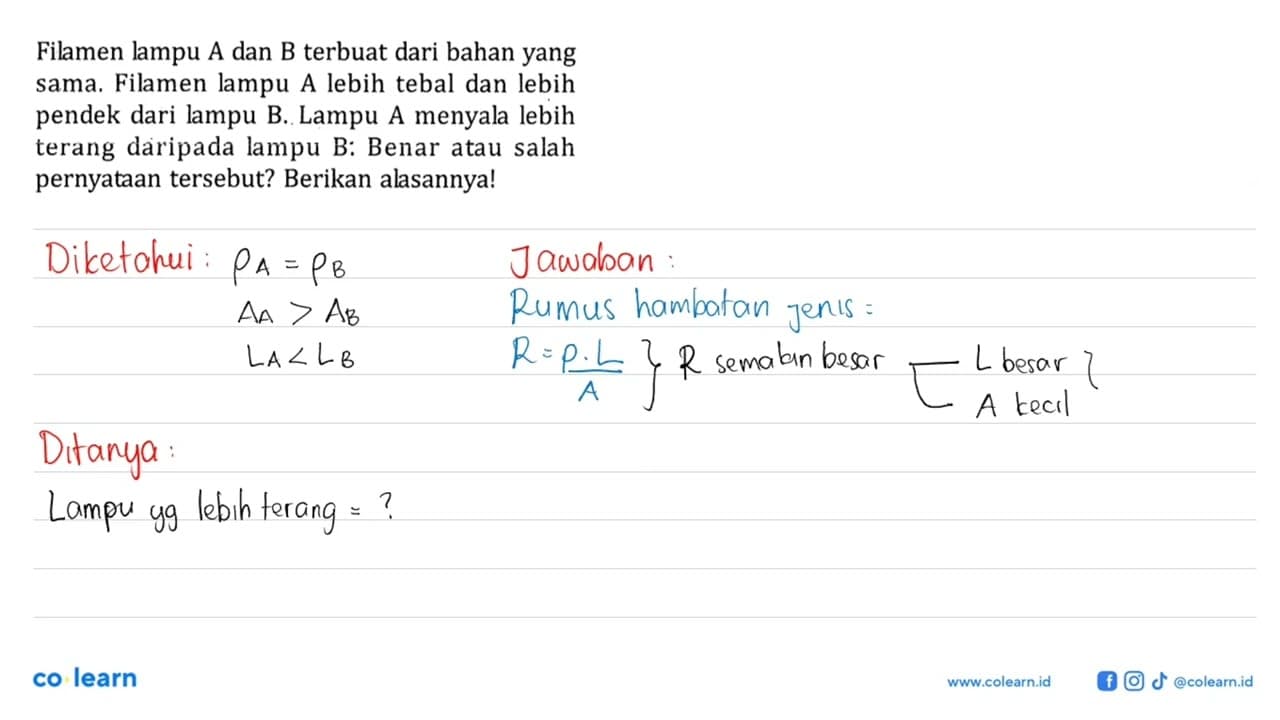 Filamen lampu A dan B terbuat dari bahan yang
sama. Filamen lampu A lebih tebal dan lebih
pendek dari lampu B. Lampu A menyala lebih
terang daripada lampu B: Benar atau salah
pernyataan tersebut? Berikan alasannya!
Diketahui : ρA = ρB
AA > AB
LA < LB
Ditanya :
Lampu yg lebih terang = ?
Jawaban :
Rumus hambatan jenis =
R = ρ . L / A } R semakin besar
L besar }
A kecil
co learn
www.colearn.id @colearn.id